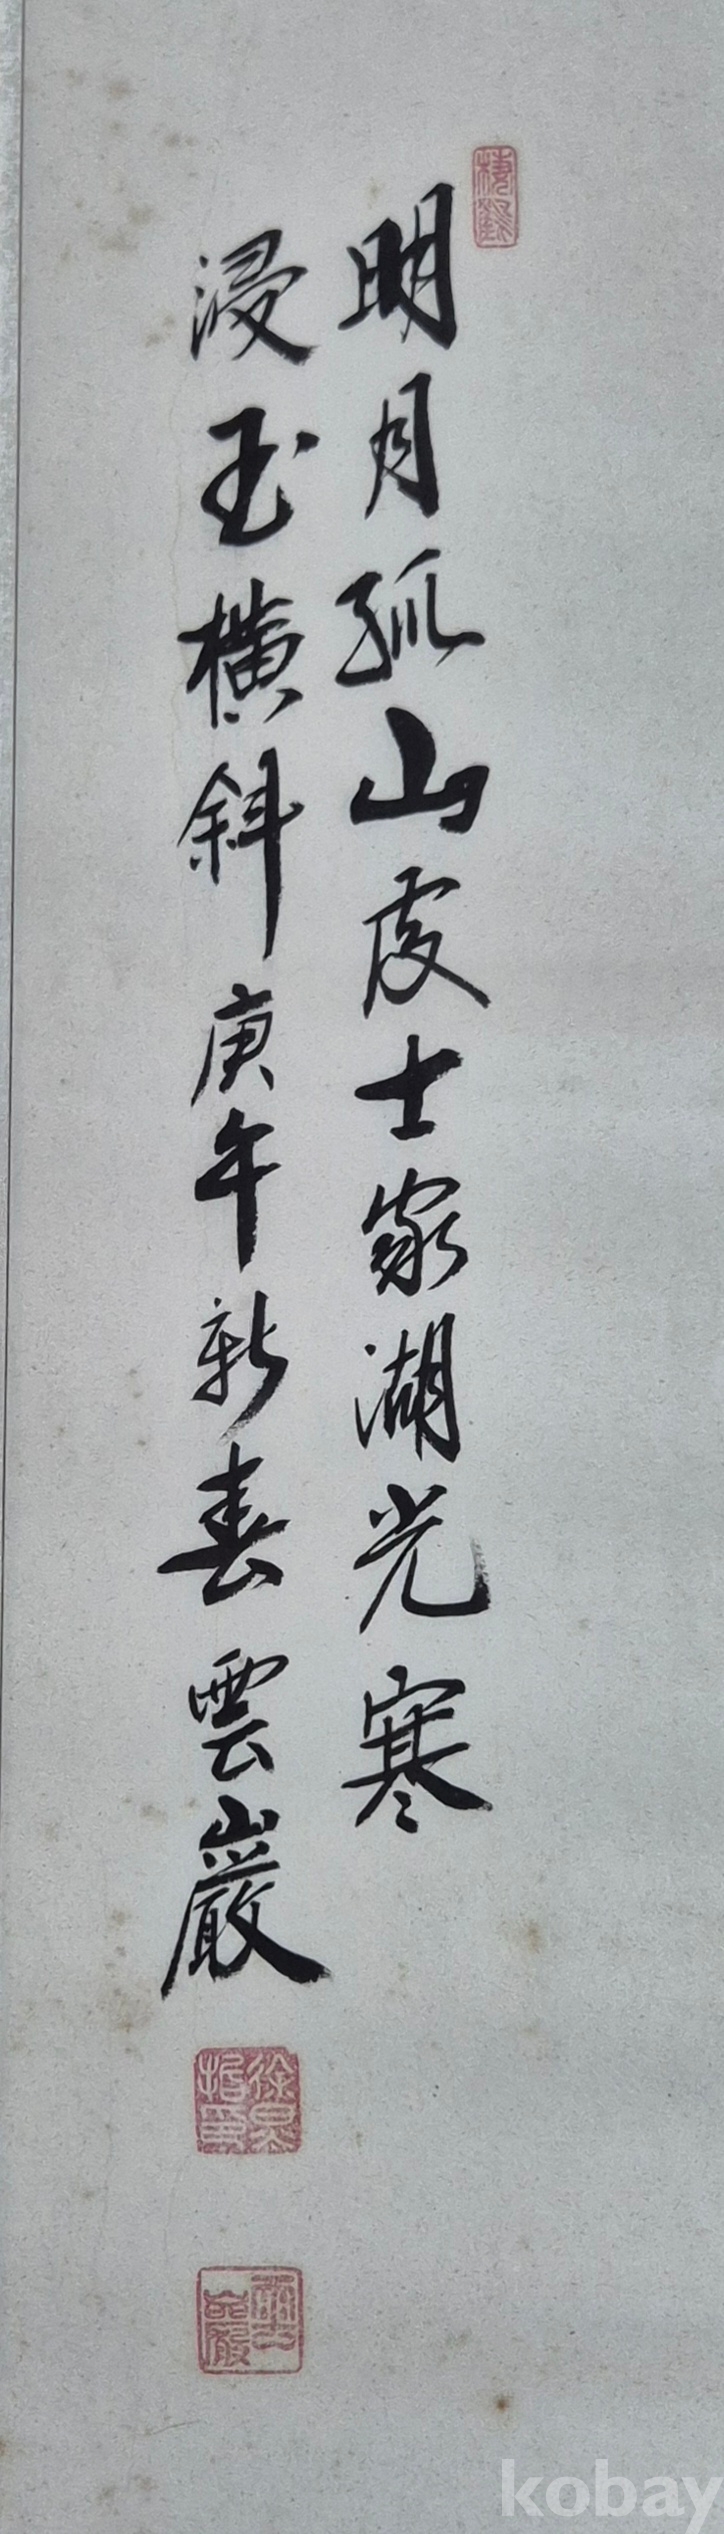 明月孤山處士家湖光寒
浸玉橫斜庚午新春雲巖
雲巖
kobay